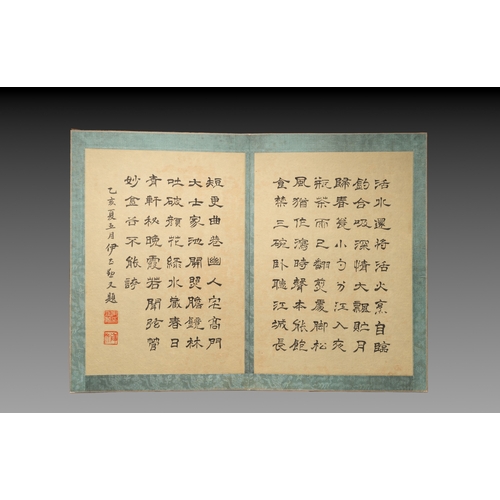 活水還將活火烹自臨
釣台汲深情大瓢貯月
歸春瓮小勺分江入夜
瓶茶雨已翻煎處腳松
風猶作瀉時聲本能飽
食禁三碗臥聽江城長
短更曲巷幽人宅高門
大士家池開照膽鏡林
吐破顏花綠水藏春日
青軒秘晚霞若聞弦管
妙金谷不能誇
乙亥夏五月伊立又題